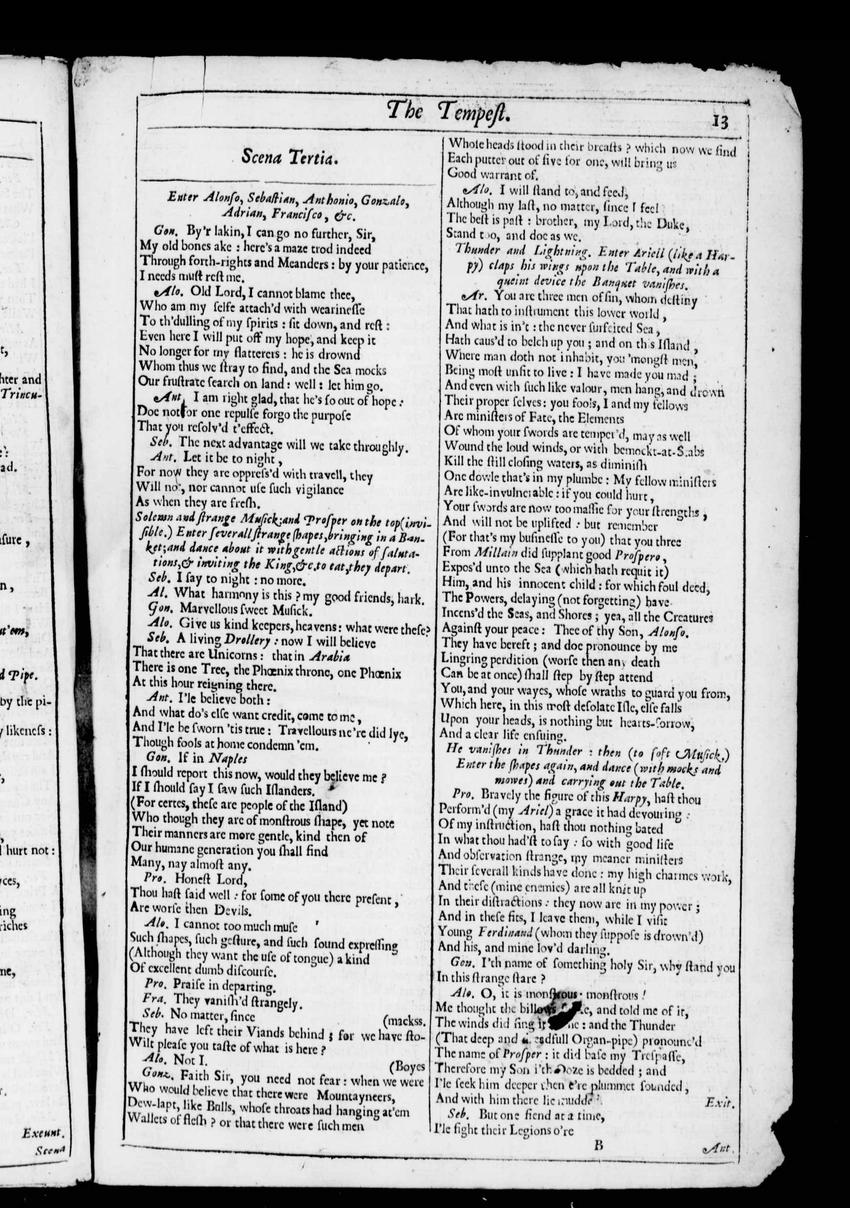 t,
hter and
Trincu-
e':
ad.
sure ,
n,
ut'em,
d Pipe.
by the pi-
y likeness :
,
,
l hurt not :
yces,
ing
riches
me,
r.
Exeunt.
Scena
The Tempeſt.
13
Scena Tertia.
Enter Alonſo, Sebaſtian, Anthonio, Gonzalo,
Adrian, Franciſco, &c.
Gon. By'r lakin, I can go no further, Sir,
My old bones ake : here's a maze trod indeed
Through forth-rights and Meanders : by your patience,
I needs muſt reſt me.
Alo. Old Lord, I cannot blame thee,
Who am my ſelfe attach'd with wearineſſe
To th'dulling of my ſpirits : ſit down, and reſt :
Even here I will put off my hope, and keep it
No longer for my flatterers : he is drownd
Whom thus we ſtray to find, and the Sea mocks
Our fruſtrate ſearch on land : well : let him go.
Ant. I am right glad, that he's ſo out of hope :
Doe not for one repulſe forgo the purpoſe
That you reſolv'd t'effect.
Seb. The next advantage will we take throughly.
Ant. Let it be to night ,
For now they are oppreſs'd with travell, they
Will not, nor cannot uſe ſuch vigilance
As when they are freſh.
Solemn and ſtrange Muſick ; and Proſper on the top (invi-
ſible.) Enter ſeverall ſtrange ſhapes, bringing in a Ban-
ket ; and dance about it with gentle actions of ſaluta-
tions, & inviting the King, &c. to eat, they depart.
Seb. I ſay to night : no more.
Al. What harmony is this ? my good friends, hark.
Gon. Marvellous ſweet Muſick.
Alo. Give us kind keepers, heavens : what were theſe?
Seb. A living Drollery : now I will believe
That there are Unicorns : that in Arabia
There is one Tree, the Phœnix throne, one Phœnix
At this hour reigning there.
Ant. I'le believe both :
And what do's elſe want credit, come to me ,
And I'le be ſworn 'tis true : Travellours ne're did lye,
Though fools at home condemn 'em.
Gon. If in Naples
I ſhould report this now, would they believe me ?
If I ſhould ſay I ſaw ſuch Iſlanders.
(For certes, theſe are people of the Iſland)
Who though they are of monſtrous ſhape, yet note
Their manners are more gentle, kind then of
Our humane generation you ſhall find
Many, nay almoſt any.
Pro. Honeſt Lord,
Thou haſt ſaid well : for ſome of you there preſent ,
Are worſe then Devils.
Alo. I cannot too much muſe
Such ſhapes, ſuch geſture, and ſuch ſound expreſſing
(Although they want the uſe of tongue) a kind
Of excellent dumb diſcourſe.
Pro. Praiſe in departing.
Fra. They vaniſh'd ſtrangely.
Seb. No matter, ſince (mackss.
They have left their Viands behind ; for we have ſto-
Wilt pleaſe you taſte of what is here ?
Alo. Not I. (Boyes
Gonz. Faith Sir, you need not fear : when we were
Who would believe that there were Mountayneers,
Dew-lapt, like Bulls, whoſe throats had hanging at'em
Wallets of fleſh ? or that there were ſuch men
Whoſe heads ſtood in their breaſts ? which now we find
Each putter out of five for one, will bring us
Good warrant of.
Alo. I will ſtand to, and feed,
Although my laſt, no matter, ſince I feel
The beſt is paſt : brother, my Lord, the Duke,
Stand too, and doe as we.
Thunder and Lightning. Enter Ariell (like a Har-
py) claps his wings upon the Table, and with a
queint device the Banquet vaniſhes.
Ar. You are three men of ſin, whom deſtiny
That hath to inſtrument this lower world ,
And what is in't : the never ſurfeited Sea ,
Hath caus'd to belch up you ; and on this Iſland ,
Where man doth not inhabit, you 'mongſt men,
Being moſt unfit to live : I have made you mad ;
And even with ſuch like valour, men hang, and drown
Their proper ſelves : you fools, I and my fellows
Are miniſters of Fate, the Elements
Of whom your ſwords are temper'd, may as well
Wound the loud winds, or with bemockt-at-Stabs
Kill the ſtill closing waters, as diminiſh
One dowle that's in my plumbe : My fellow miniſters
Are like-invulnerable : if you could hurt ,
Your ſwords are now too maſſie for your ſtrengths ,
And will not be uplifted : but remember
(For that's my buſineſſe to you) that you three
From Millain did ſupplant good Proſpero ,
Expos'd unto the Sea (which hath requit it)
Him, and his innocent child : for which foul deed,
The Powers, delaying (not forgetting) have
Incens'd the Seas, and Shores ; yea, all the Creatures
Againſt your peace : Thee of thy Son, Alonſo.
They have bereft ; and doe pronounce by me
Lingring perdition (worſe then any death
Can be at once) ſhall ſtep by ſtep attend
You, and your wayes, whoſe wraths to guard you from,
Which here, in this moſt deſolate Iſle, elſe falls
Upon your heads, is nothing but hearts-ſorrow,
And a clear life enſuing.
He vaniſhes in Thunder : then (to ſoft Muſick.)
Enter the ſhapes again, and dance (with mocks and
mowes) and carrying out the Table.
Pro. Bravely the figure of this Harpy, haſt thou
Perform'd (my Ariel) a grace it had devouring :
Of my inſtruction, haſt thou nothing bated
In what thou had'ſt to ſay : ſo with good life
And obſervation ſtrange, my meaner miniſters
Their ſeverall kinds have done : my high charmes work,
And theſe (mine enemies) are all knit up
In their diſtractions : they now are in my power ;
And in theſe fits, I leave them, while I viſit
Young Ferdinand (whom they ſuppoſe is drown'd)
And his, and mine lov'd darling.
Gon. I'th name of ſomething holy Sir, why ſtand you
In this ſtrange ſtare ?
Alo. O, it is monſtrous : monſtrous !
Me thought the billows and told me of it,
The winds did ſing it me : and the Thunder
(That deep and dreadfull Organ-pipe) pronounc'd
The name of Proſper : it did baſe my Treſpaſſe,
Therefore my Son i'th Ooze is bedded ; and
I'le ſeek him deeper then e're plummet ſounded ,
And with him there lie mudded. Exit.
Seb. But one fiend at a time,
I'le fight their Legions o're
B
Ant.